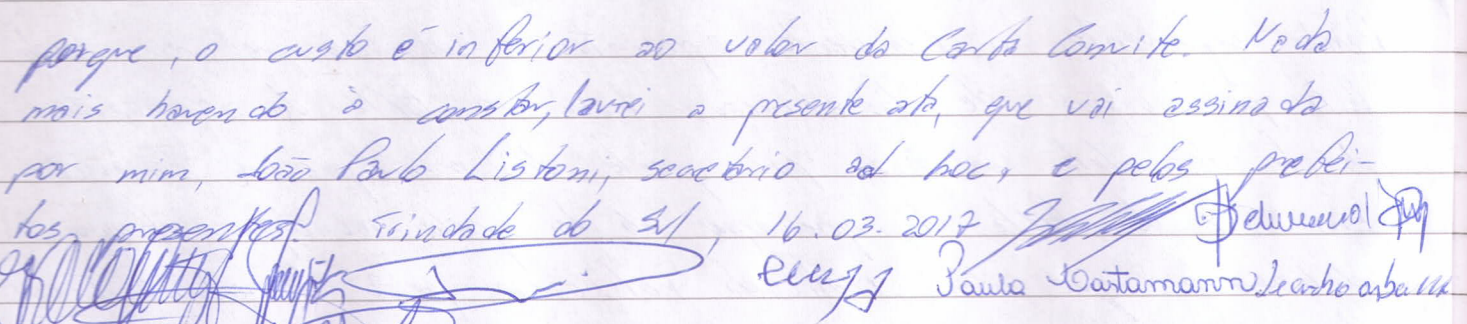 porque, o custo é inferior ao valor da Carta Convite. Nada
mais havendo à constar, lavrei a presente ata, que vai assinada
por mim, João Paulo Listoni, secretário ad hoc, e pelos prefei-
tos presentes. Trindade do Sul, 16.03.2017
Paula